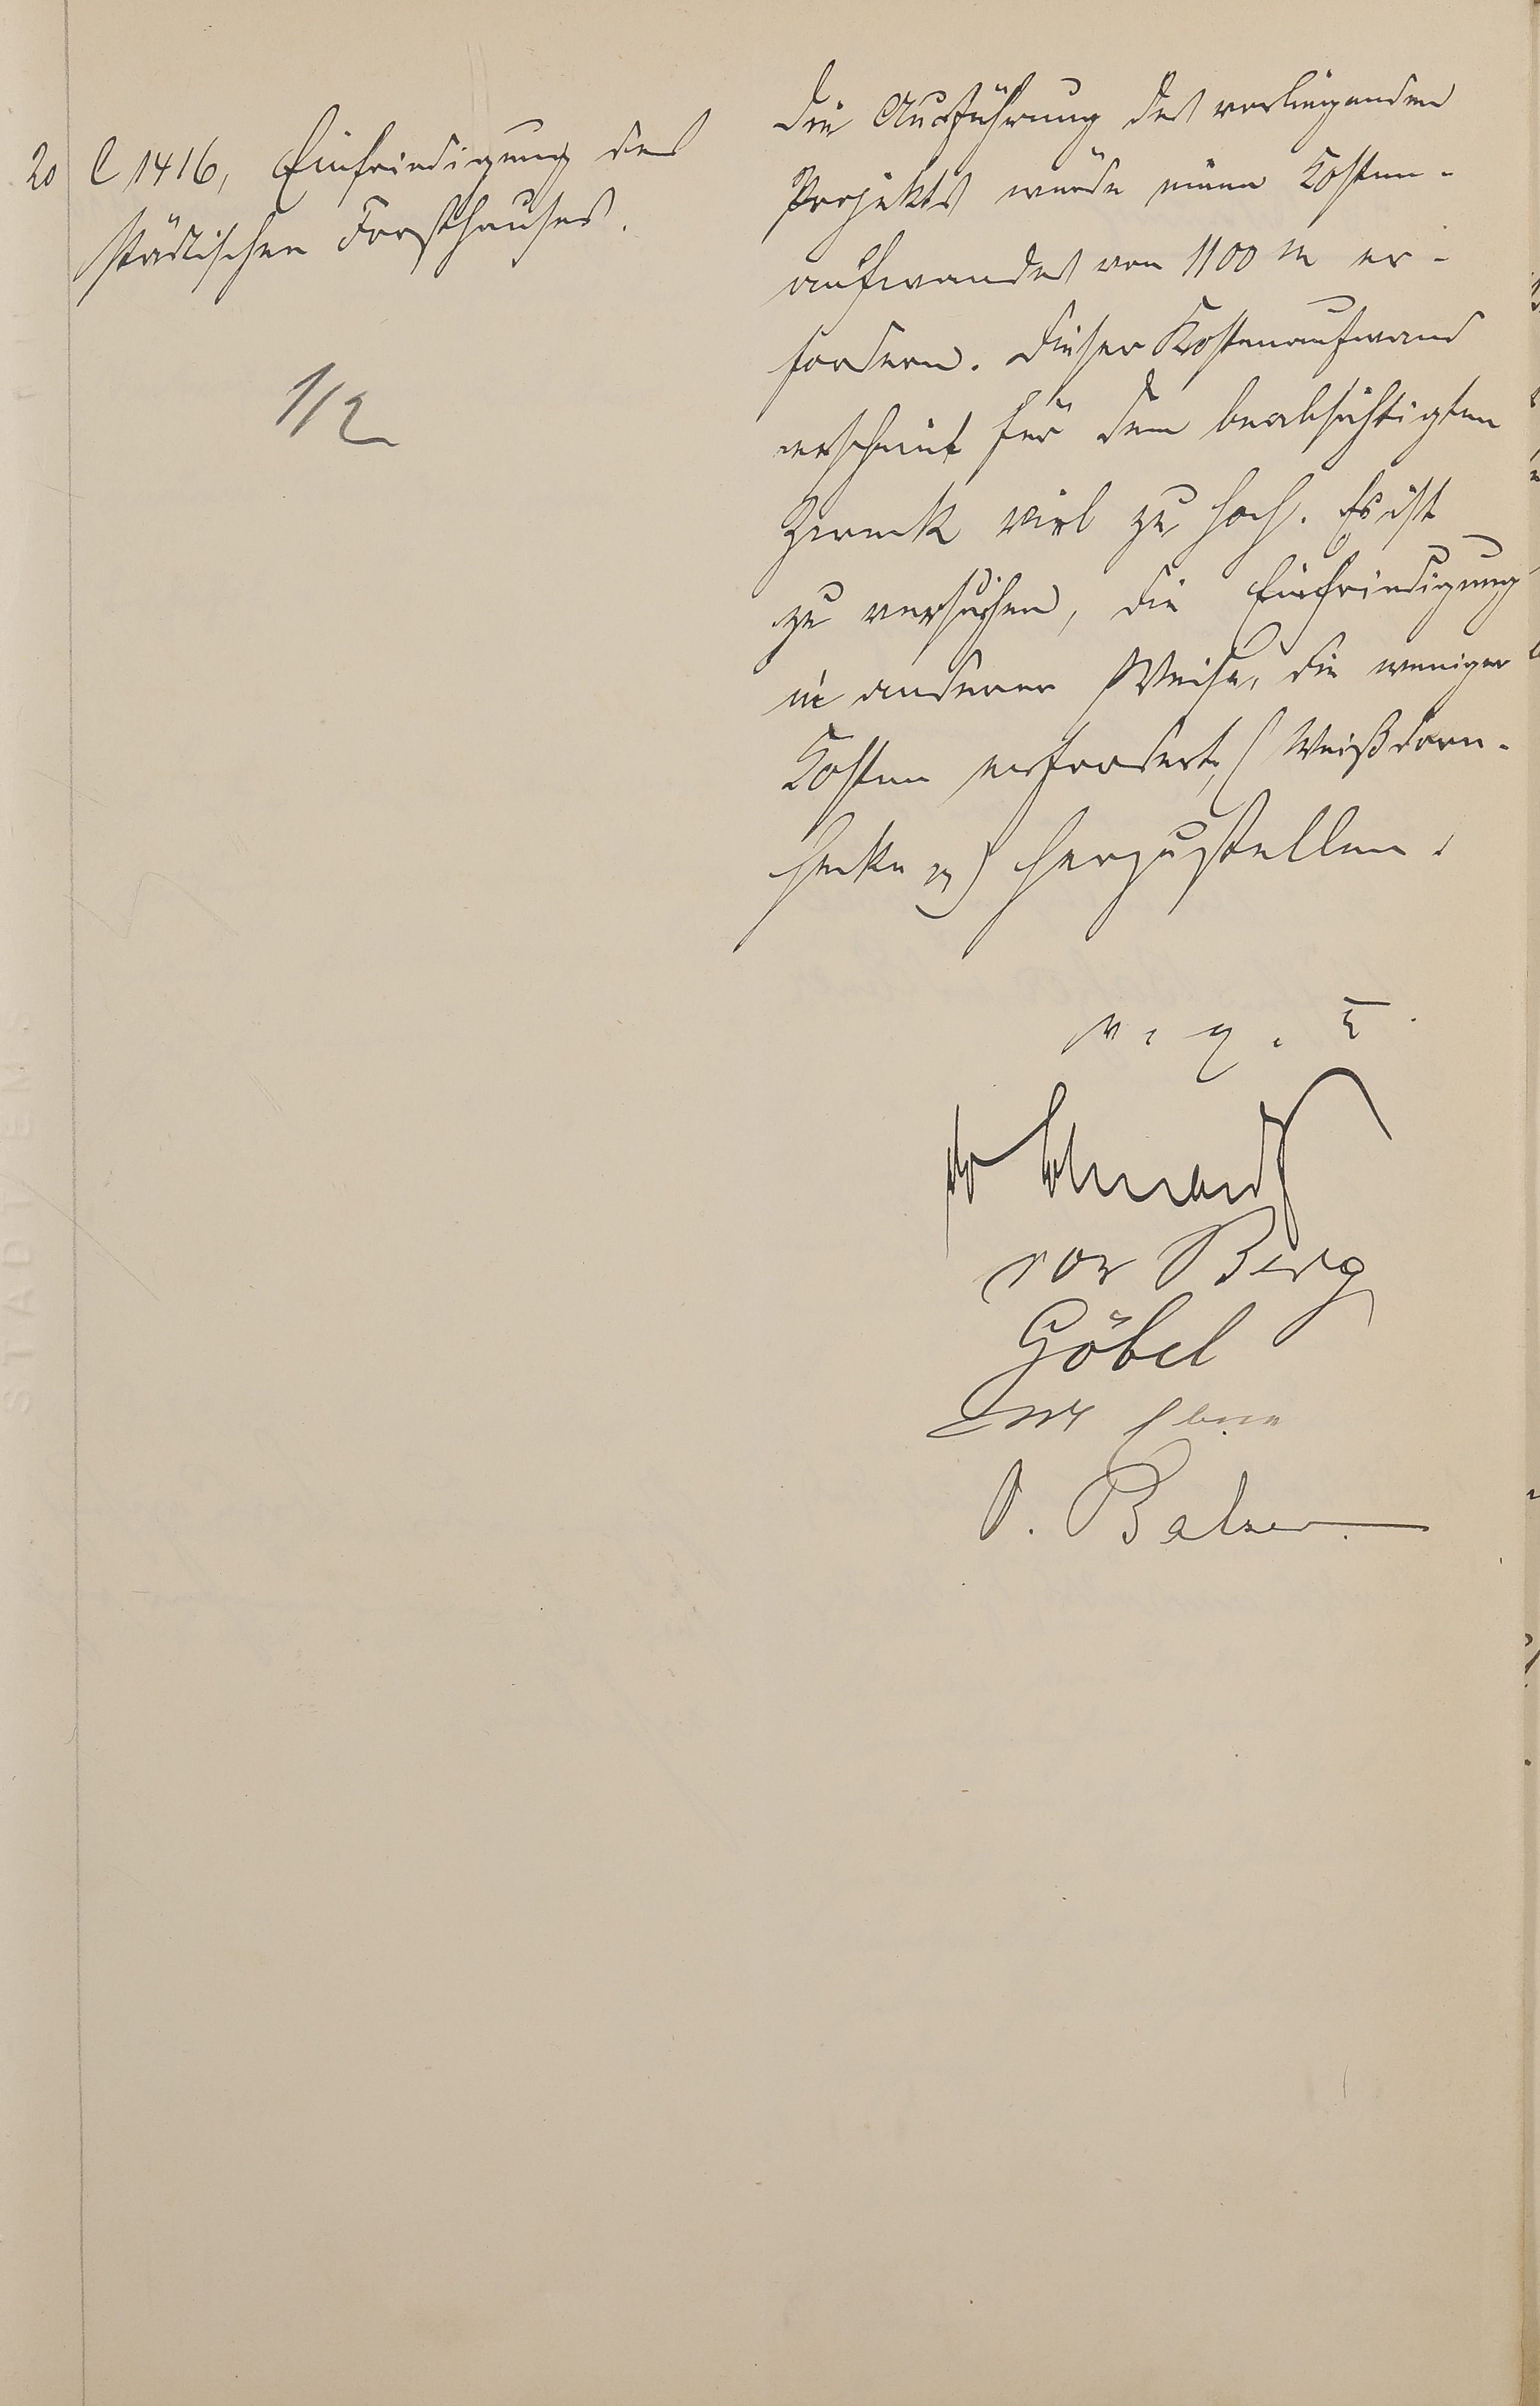 20 C 1416, Einfriedigung des
städtischen Forsthauses.
1/2
Die Ausführung des vorliegenden
Projekts würde einen Kosten-
aufwandes von 1100 M er-
fordern. Dieser Kostenaufwand
erscheint für den beabsichtigten
Zweck viel zu hoch. Es ist
zu versuchen, die Einfriedigung
in anderer Weise, die weniger
Kosten erfordert, (Weißdorn-
hecke pp) herzustellen.
v. g. u.
vor Berg
Göbel
O. Balzer
STADT EMS